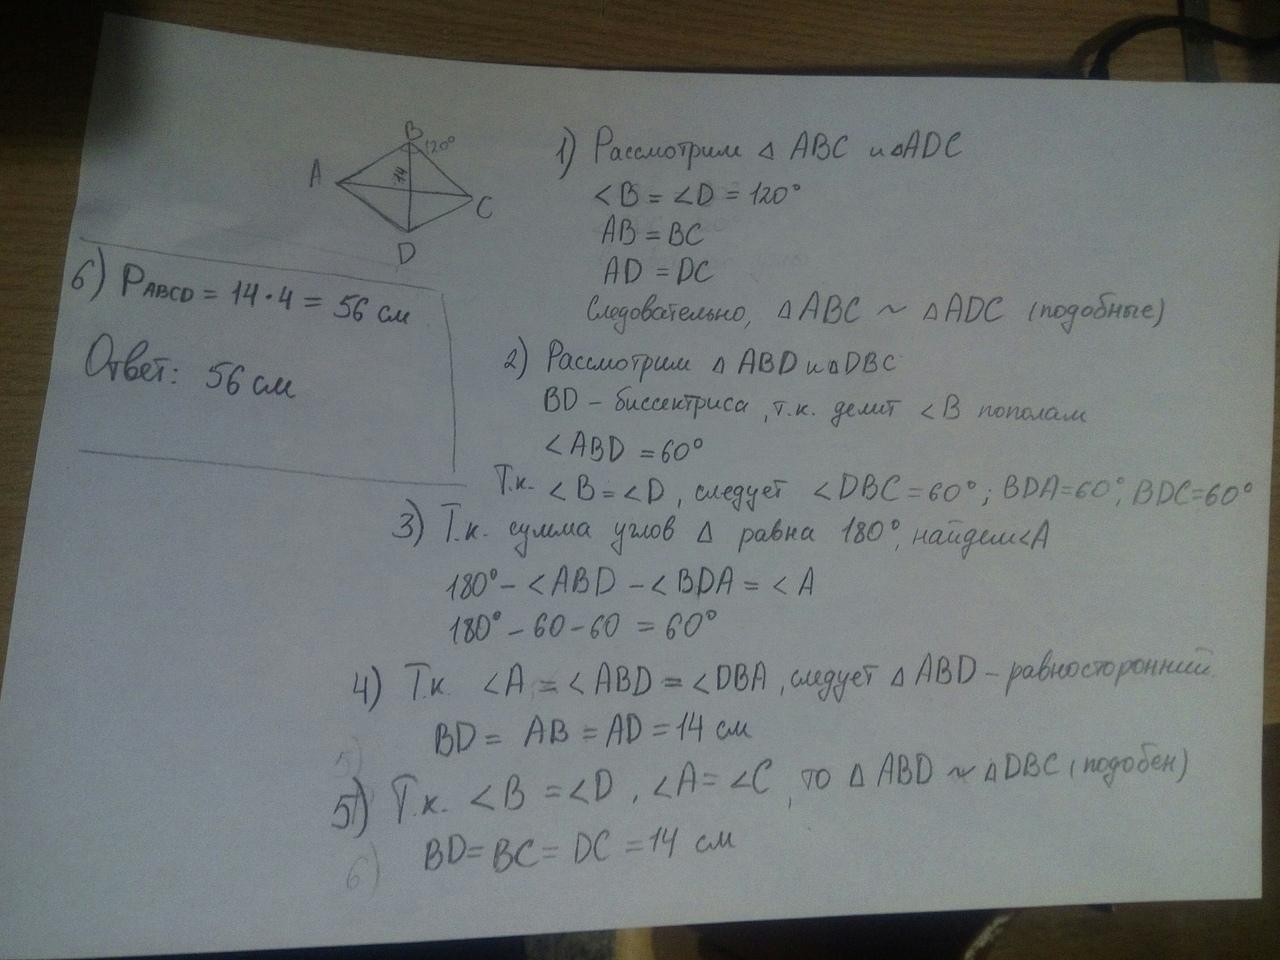 B
120°
A
14
C
D
1) Рассмотрим △ ABC и △ADC
∠B = ∠D = 120°
AB = BC
AD = DC
Следовательно, △ABC ~ △ADC (подобные)
2) Рассмотрим △ ABD и △DBC
BD – биссектриса, т.к. делит ∠B пополам
∠ABD = 60°
Т.к. ∠B = ∠D, следует ∠DBC = 60°; BDA=60°; BDC=60°
3) Т.к. сумма углов △ равна 180°, найдем ∠A
180° – ∠ABD – ∠BDA = ∠A
180° – 60 – 60 = 60°
4) Т.к. ∠A = ∠ABD = ∠DBA, следует △ ABD – равносторонний.
BD = AB = AD = 14 см
5)
5) Т.к. ∠B = ∠D, ∠A = ∠C, то △ ABD ~ △DBC (подобен)
BD = BC = DC = 14 см
6)
6) PABCD = 14 · 4 = 56 см
Ответ: 56 см